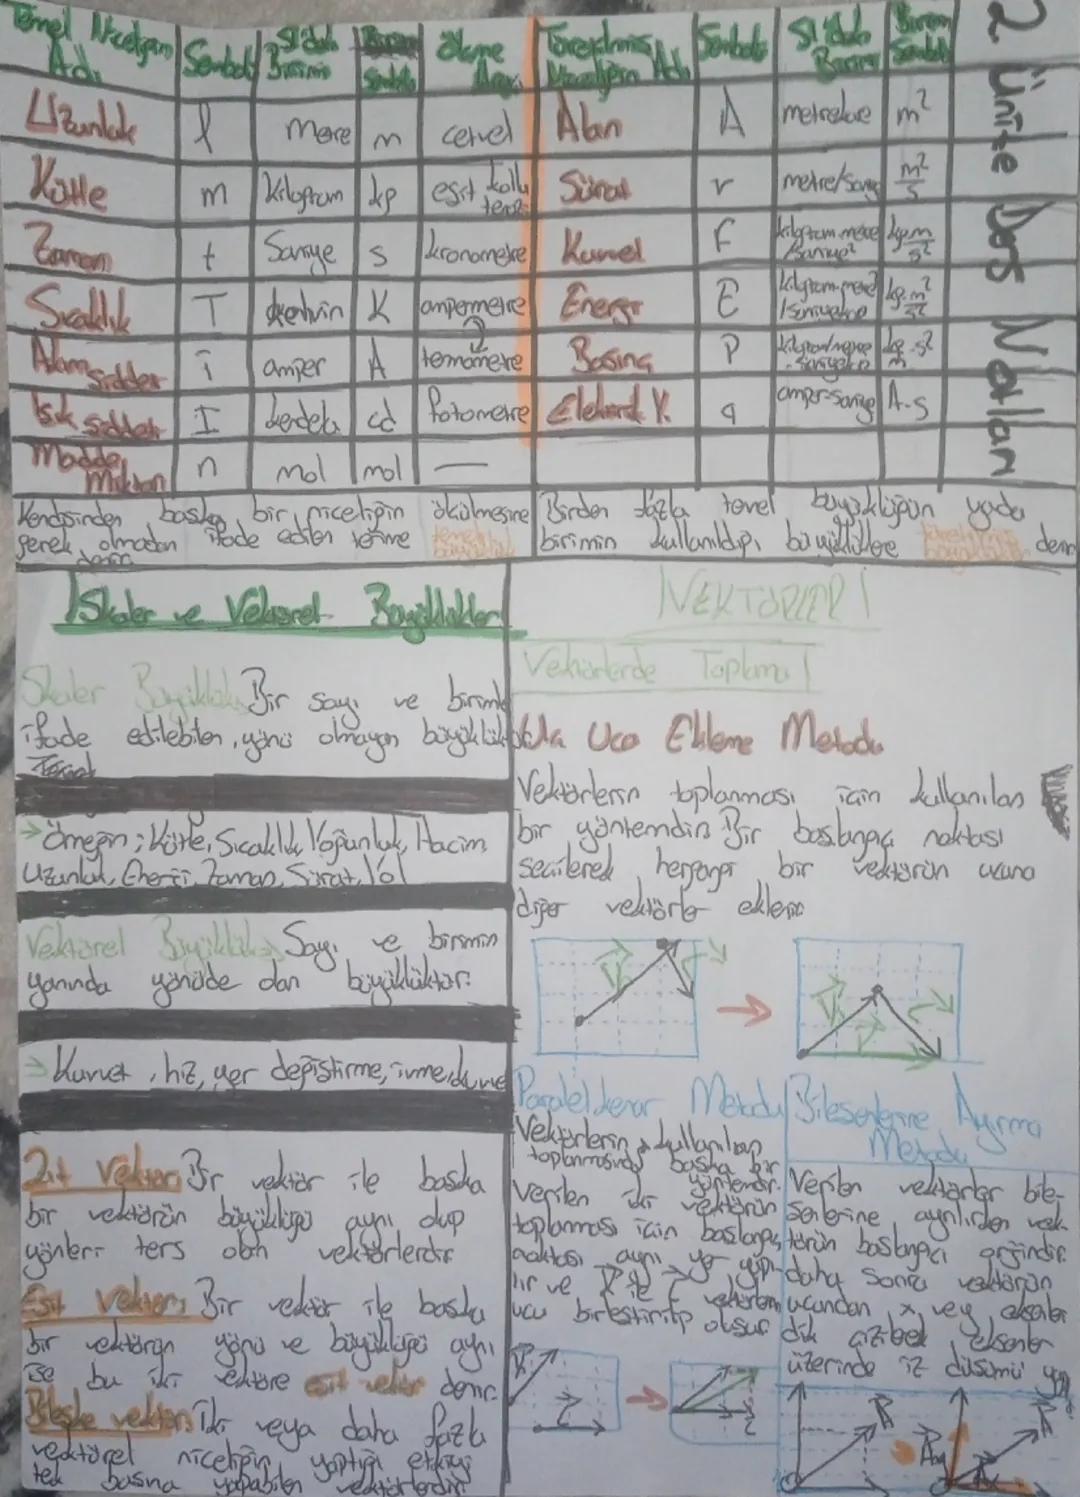 2. Ünite Ders Notları
Temel Niceliğin Adı | Sembol | SI'daki Birimi | Birim Sembolü | Ölçme Aracı
Uzunluk | l | Metre | m | cetvel
Kütle | m | kilogram | kg | eşit kollu terazi
Zaman | t | Saniye | s | kronometre
Sıcaklık | T | kelvin | K | ampermetre
Akım Şiddeti | i | amper | A | termometre
Işık şiddeti | I | kandela | cd | fotometre
Madde Miktarı | n | mol | mol | —
Türetilmiş Niceliğin Adı | Sembolü | SI'daki Birimi | Birim Sembolü
Alan | A | metrekare | m²
Sürat | v | metre/saniye | m²/s
Kuvvet | F | kilogram.metre/saniye² | kg.m/s²
Enerji | E | kg.m²/s²
Basınç | P
Elektrik Y. | q | amper-saniye | A.s
Kendisinden başka bir niceliğin ölçülmesine
gerek olmadan ifade edilen terime temel büyüklük
denir
Birden fazla temel büyüklüğün yada
birimin kullanıldığı büyüklüklere türetilmiş büyüklük denir
Skaler ve Vektörel Büyüklükler
Skaler Büyüklük: Bir sayı ve birimle
ifade edilebilen, yönü olmayan büyüklüktür
→ Örneğin; Kütle, Sıcaklık, Yoğunluk, Hacim,
Uzunluk, Enerji, Zaman, Sürat, Yol
Vektörel Büyüklük: Sayı ve birimin
yanında yönüde olan büyüklüktür.
→ Kuvvet, hız, yer değiştirme, ivme, kuvvet
Zıt Vektör: Bir vektör ile başka
bir vektörün büyüklüğü aynı olup
yönleri ters olan vektörlerdir
Eşit Vektör: Bir vektör ile başka
bir vektörün yönü ve büyüklüğü aynı
ise bu iki vektöre eşit vektör denir.
Bileşke vektör: İki veya daha fazla
vektörel niceliğin yaptığı etkiyi
tek başına yapabilen vektörlerdir
VEKTÖRLER
Vektörlerde Toplama
Uç Uca Ekleme Metodu
Vektörlerin toplanması için kullanılan
bir yöntemdir. Bir başlangıç noktası
seçilerek herhangi bir vektörün ucuna
diğer vektörler eklenir
Paralel kenar Metodu
Vektörlerin kullanılan
toplanmasında başka bir
yöntemdir.
Verilen iki vektörün
toplanması için başlangıç
noktası aynı yer yapı-
lır ve
ucu birleştirilip oluşur
Bileşenlerine Ayırma
Metodu
Verilen vektörler bile-
şenlerine ayrılırken vek-
törün başlangıcı orjindir.
daha sonra vektörün
ucundan x, ve y eksenler
dik çizilerek eksenler
üzerinde iz düşümü